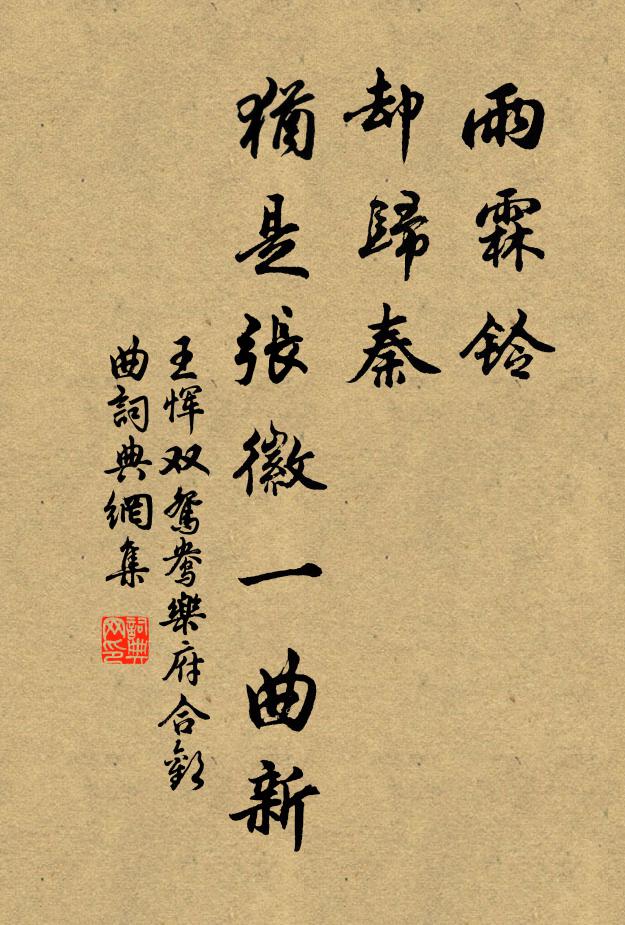 雨霖鈴
却歸秦
猶是張徽一曲新
王惲双鴛鴦樂府合歡
曲詞典網集
詞典网印